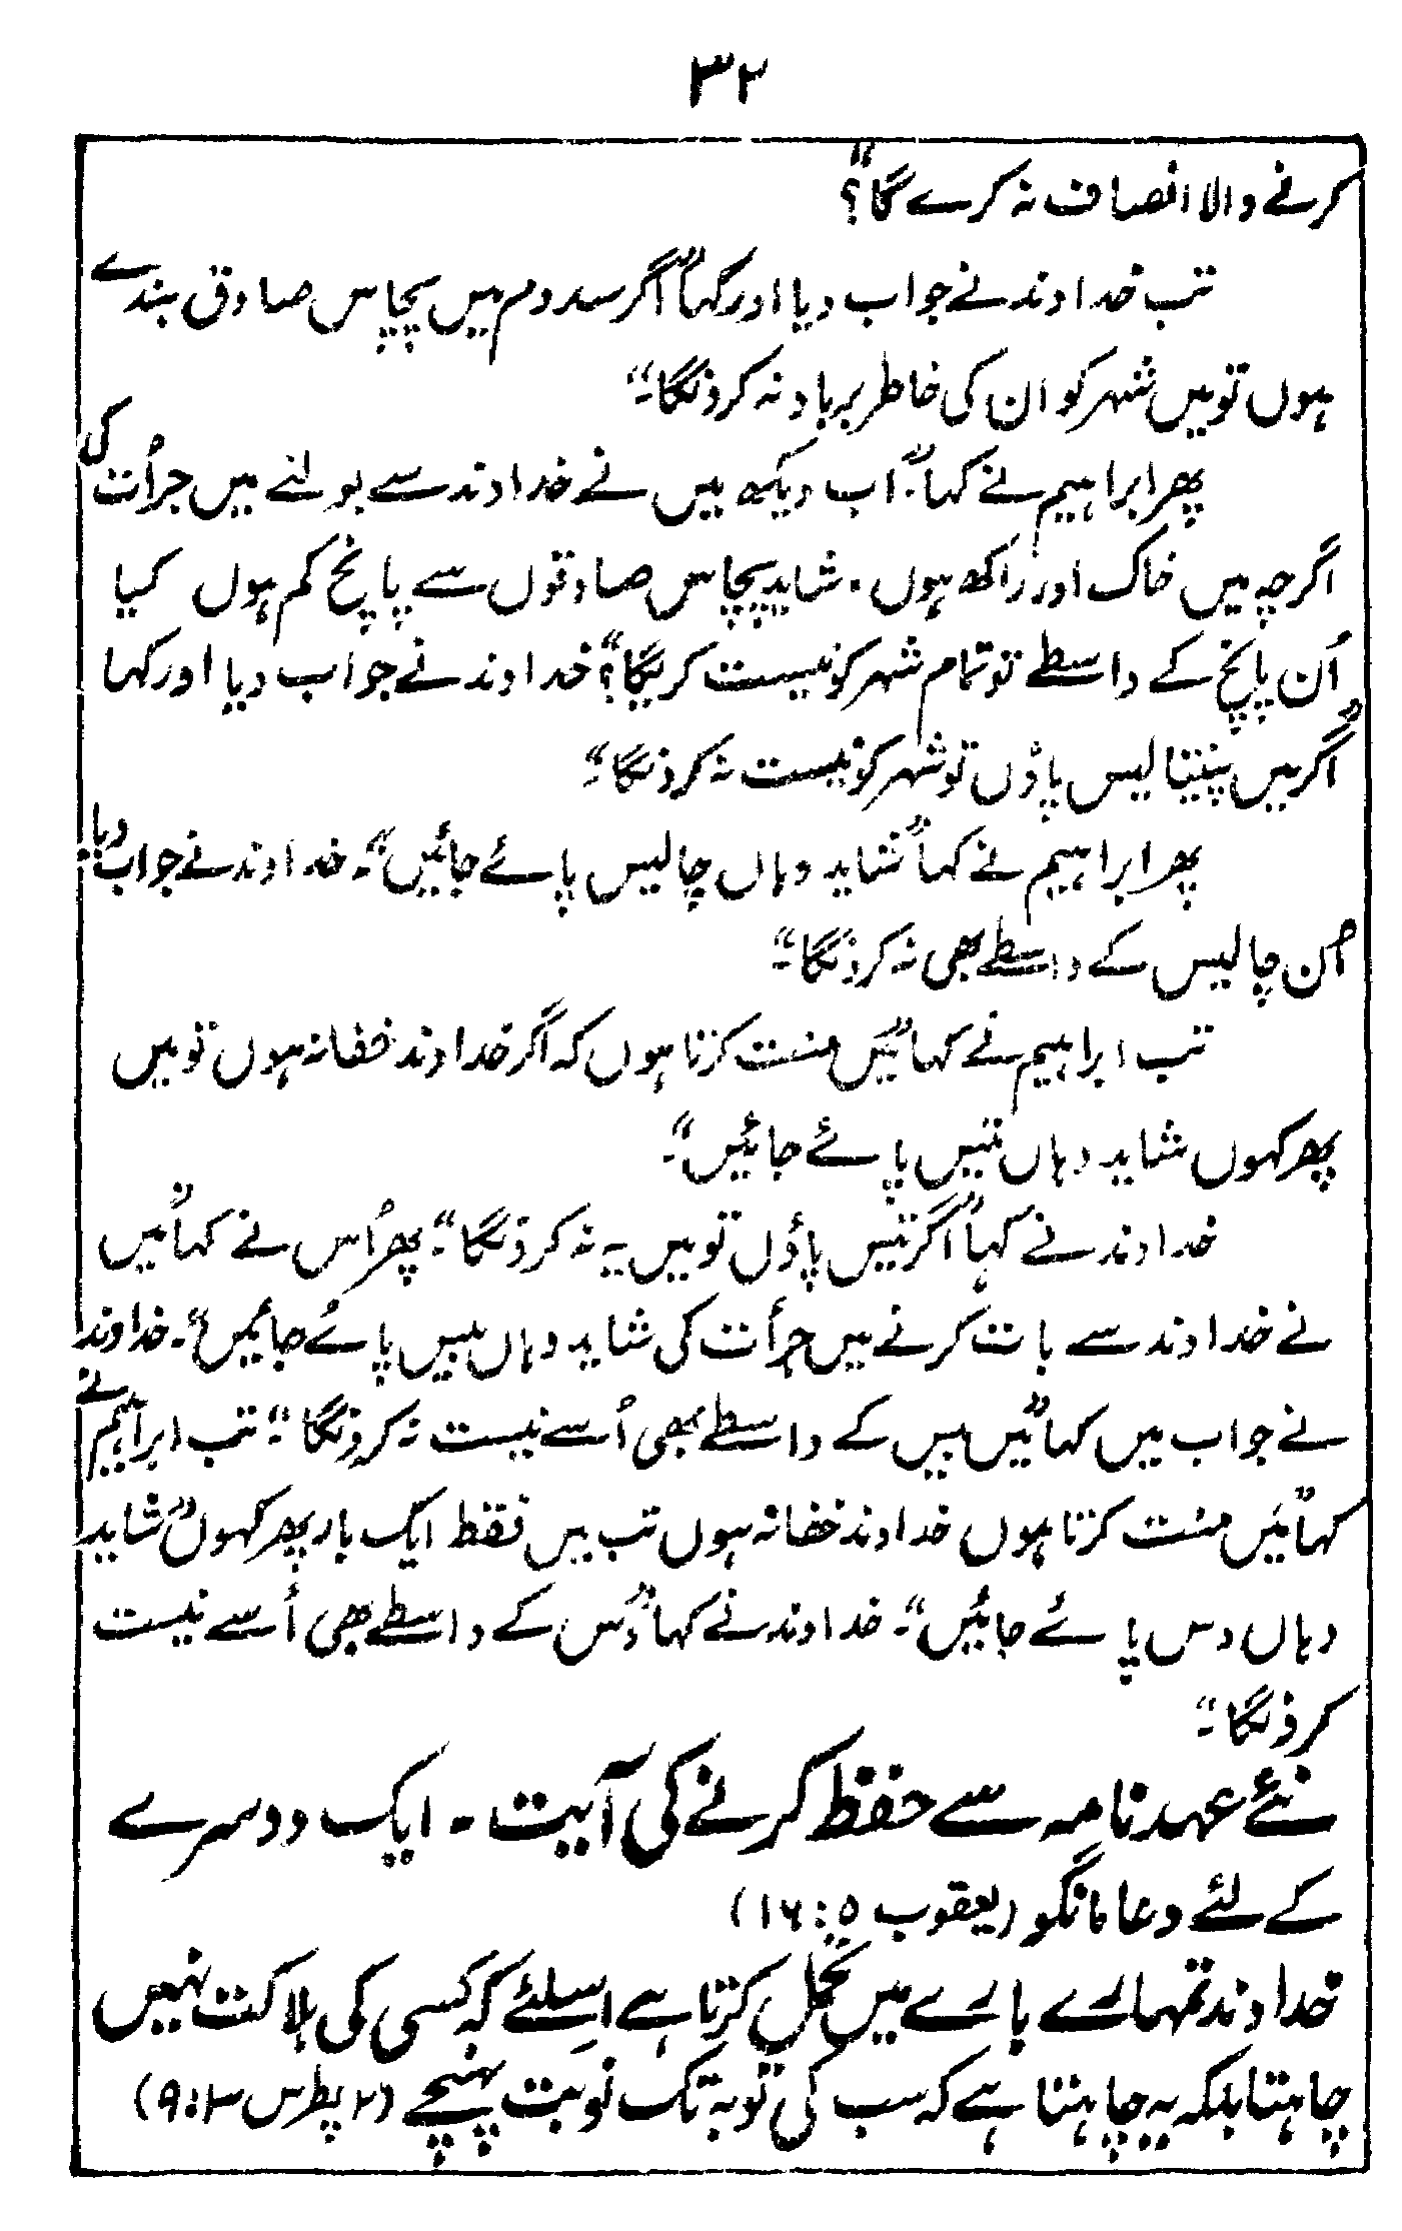 ۳۲
کرنے والا انصاف نہ کرے گا“؟
تب خداوند نے جواب دیا اور کہا ”اگر سدوم میں پچاس صادق بندے
ہوں تو میں شہر کو ان کی خاطر برباد نہ کرونگا“۔
پھر ابراہیم نے کہا ”اب دیکھ میں نے خداوند سے بولنے میں جرأت کی
اگرچہ میں خاک اور راکھ ہوں۔ شاید پچاس صادقوں سے پانچ کم ہوں کیا
اُن پانچ کے واسطے تو تمام شہر کو نیست کریگا“؟ خداوند نے جواب دیا اور کہا
”اگر میں پنتیالیس پاؤں تو شہر کو نیست نہ کرونگا“۔
پھر ابراہیم نے کہا ”شاید وہاں چالیس پائے جائیں“۔ خداوند نے جواب دیا
”اُن چالیس کے واسطے بھی نہ کرونگا“۔
تب ابراہیم نے کہا ”میں منت کرتا ہوں کہ اگر خداوند خفا نہ ہوں تو میں
پھر کہوں شاید وہاں تیس پائے جائیں“۔
خداوند نے کہا ”اگر تیس پاؤں تو میں یہ نہ کرونگا“۔ پھر اُس نے کہا ”میں
نے خداوند سے بات کرنے میں جرأت کی شاید وہاں بیس پائے جائیں“۔ خداوند
نے جواب میں کہا ”میں بیس کے واسطے بھی اُسے نیست نہ کرونگا“۔ تب ابراہیم نے
کہا ”میں منت کرتا ہوں خداوند خفا نہ ہوں تب میں فقط ایک بار پھر کہوں ”شاید
وہاں دس پائے جائیں“۔ خداوند نے کہا ”دس کے واسطے بھی اُسے نیست
کرونگا“۔
نئے عہد نامہ سے حفظ کرنے کی آیت ۔ ایک دوسرے
کے لئے دعا مانگو (یعقوب ۵:۱۶)
خداوند تمہارے بارے میں تحمل کرتا ہے اسلئے کہ کسی کی ہلاکت نہیں
چاہتا بلکہ یہ چاہتا ہے کہ سب کی توبہ تک نوبت پہنچے (۲ پطرس ۳:۹)